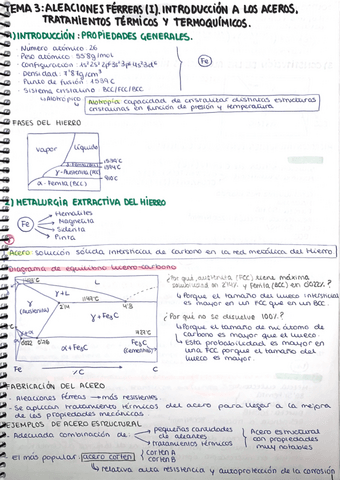 TEMA 3: ALEACIONES FÉRREAS (I). INTRODUCCIÓN A LOS ACEROS,
TRATAMIENTOS TÉRMICOS Y TERMOQUÍMICOS.
1) INTRODUCCIÓN: PROPIEDADES GENERALES.
- Número atómico: 26
- Peso atómico: 55'8 g/mol
- Configuración: 1s² 2s² 2p⁶ 3s² 3p⁶ 4s² 3d⁶
Fe
- Densidad: 7'87 g/cm³
- Punto de fusión: 1539 C
- Sistema cristalino BCC/FCC/BCC
↳ Alotrópico
Alotropía: capacidad de cristalizar distintas estructuras
cristalinas en función de presión y temperatura.
FASES DEL HIERRO
vapor
líquido
1539°C
1394°C
γ-Austenita (FCC)
910°C
α-Ferrita (BCC)
2) METALURGIA EXTRACTIVA DEL HIERRO
Fe
Hematites
Magnetita
Siderita
Pirita
Acero: solución sólida intersticial de carbono en la red metálica del hierro
Diagrama de equilibrio hierro-carbono
¿Por qué austenita (FCC) tiene máxima
solubilidad en 2'14% y ferrita (BCC) en 0'022%?
↳ Porque el tamaño del hueco intersticial
es mayor en un FCC que en un BCC.
¿Por qué no se disuelve 100%?
↳ Porque el tamaño de un átomo de
carbono es mayor que el hueco
↳ Esta probabilidad es mayor en
una FCC porque el tamaño del
hueco es mayor.
L
γ+L
γ
(Austenita)
2'14
4'3
γ+Fe₃C
727°C
0'022
0'76
α+Fe₃C
Fe₃C
(Cementita)
Fe
% C
C
FABRICACIÓN DEL ACERO
- Aleaciones Férreas → más resistentes.
- Se aplican tratamiento térmicos del acero para llegar a la mejora
de las propiedades mecánicas
EJEMPLOS DE ACERO ESTRUCTURAL
- Adecuada combinación de:
pequeñas cantidades
de aleantes
tratamientos térmicos
Acero estructuras
con propiedades
muy notables
El más popular: acero corten
Corten A
Corten B
↳ relativa alta resistencia y autoprotección de la corrosión